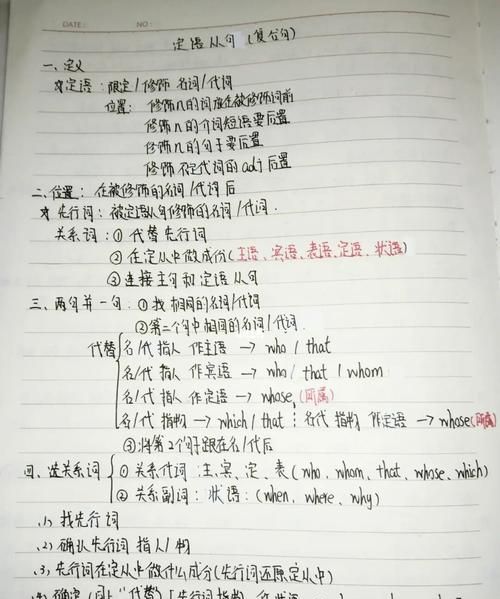 DATE: NO:
定语从句(复合句)
一、定义
☆定语:限定/修饰 名词/代词
位置: 修饰n的词放在被修饰词前
修饰n的介词短语要后置
修饰n的句子要后置
修饰不定代词的adj后置
二、位置:在被修饰的名词/代词后
☆先行词:被定语从句修饰的名词/代词.
关系词:① 代替先行词
② 在定从中做成份(主语、宾语、表语、定语、状语)
③ 连接主句和定语从句
三、两句并一句:① 找相同的名词/代词
②第二个句中相同的名词/代词
代替 名/代 指人 作主语 → who / that
名/代 指人 作宾语 → who / that / whom
名/代 指人 作定语 → whose(所属)
名/代 指物 → which / that ; 名代 指物 作定语 → whose(所属)
③将第2个句子跟在名/代后
四、选关系词 ① 关系代词:主、宾、定、表(who、whom、that、whose、which)
② 关系副词:状语:(when、where、why)
(1) 找先行词
(2) 确认先行词 指人/物
(3) 先行词在定从中做什么成分(先行词还原定从中)
(4) 确定(同上"代替)